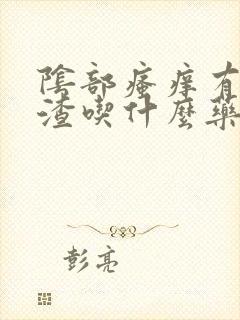 陰部瘙痒有
渣喫什麼藥
彭亮